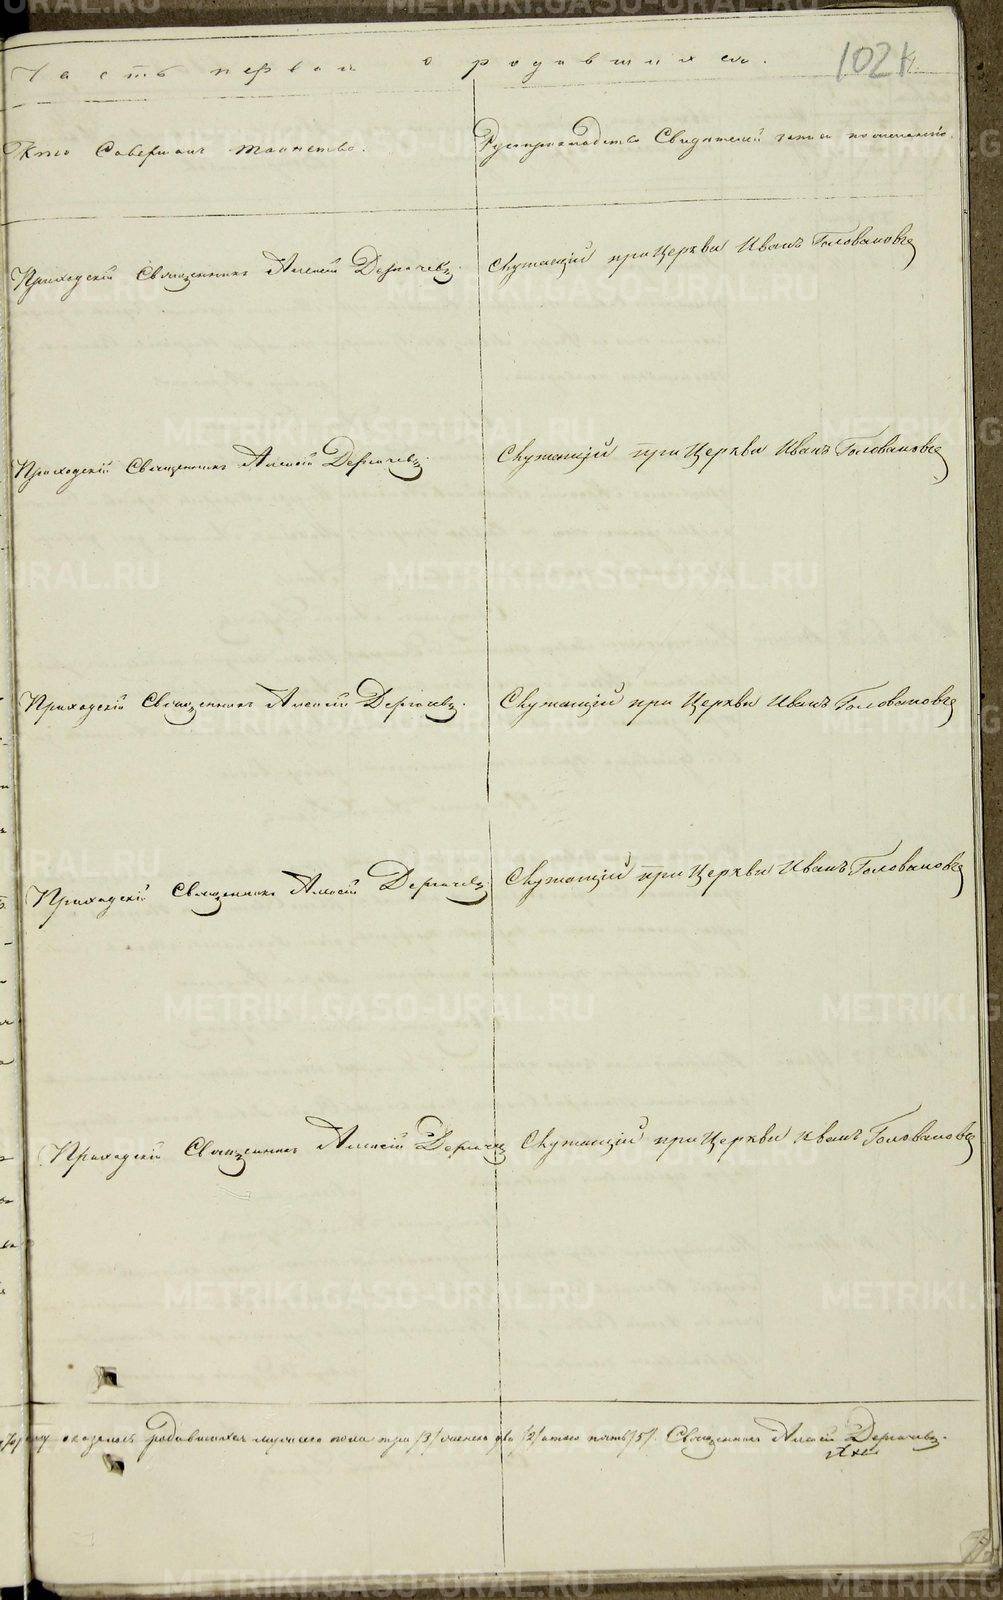 Часть первая о родившихся.
102
Кто совершалъ таинство.
Рукоприкладство Свидѣтелей записи по желанію.
Приходскій Священникъ Алексій Дергачевъ.
Служащій при Церкви Иванъ Головановъ
Приходскій Священникъ Алексій Дергачевъ.
Служащій при Церкви Иванъ Головановъ
Приходскій Священникъ Алексій Дергачевъ.
Служащій при Церкви Иванъ Головановъ
Приходскій Священникъ Алексій Дергачевъ
Служащій при Церкви Иванъ Головановъ
Приходскій Священникъ Алексій Дергачевъ
Служащій при Церкви Иванъ Головановъ
родившихся мужеска пола три /3/ женска два /2/ а того пять /5/. Священникъ Алексій Дергачевъ.
METRIKI.GASO-URAL.RU